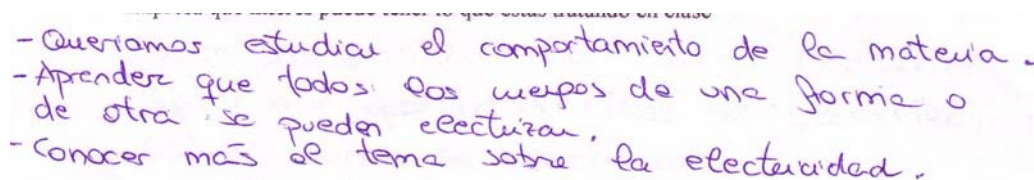 que interés puede tener lo que estás tratando en clase
- Queriamos estudiar el comportamiento de la materia.
- Aprender que todos los cuerpos de una forma o
de otra se pueden electrizar.
- Conocer más el tema sobre la electricidad.